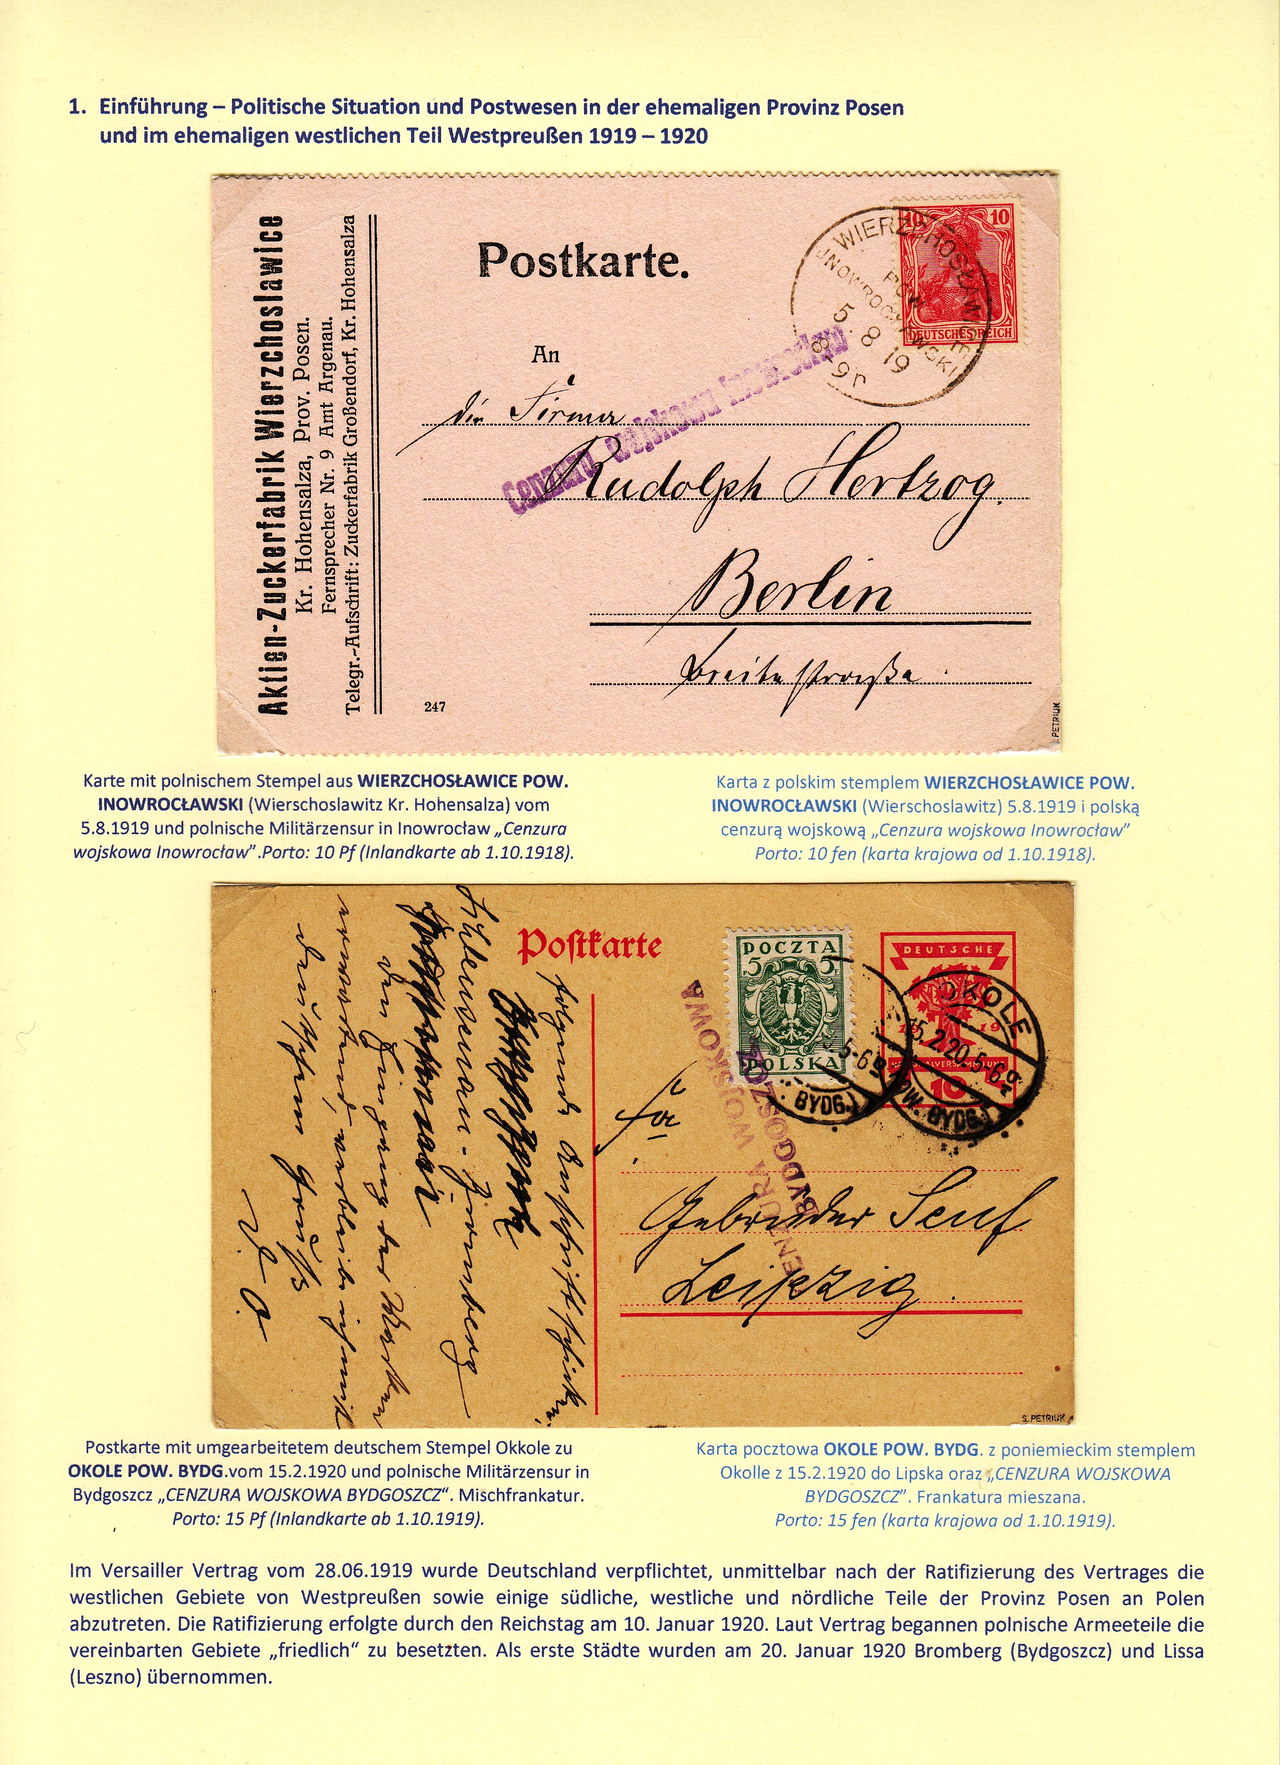 1. Einführung – Politische Situation und Postwesen in der ehemaligen Provinz Posen
und im ehemaligen westlichen Teil Westpreußen 1919 – 1920
Aktien-Zuckerfabrik Wierzchoslawice
Kr. Hohensalza, Prov. Posen.
Fernsprecher Nr. 9 Amt Argenau.
Telegr.-Aufschrift: Zuckerfabrik Großendorf, Kr. Hohensalza
Postkarte.
10 10
DEUTSCHES REICH
WIERZCHOSŁAWICE
POW.
INOWROCŁAWSKI
5. 8 19
8-9V
An
Cenzura wojskowa Inowrocław
die Firma
Rudolph Hertzog.
Berlin
Breitestraße.
247
S. PETRIUK
Karte mit polnischem Stempel aus WIERZCHOSŁAWICE POW.
INOWROCŁAWSKI (Wierschoslawitz Kr. Hohensalza) vom
5.8.1919 und polnische Militärzensur in Inowrocław „Cenzura
wojskowa Inowrocław”.Porto: 10 Pf (Inlandkarte ab 1.10.1918).
Karta z polskim stemplem WIERZCHOSŁAWICE POW.
INOWROCŁAWSKI (Wierschoslawitz) 5.8.1919 i polską
cenzurą wojskową „Cenzura wojskowa Inowrocław”
Porto: 10 fen (karta krajowa od 1.10.1918).
Postkarte
POCZTA
5 5
POLSKA
DEUTSCHE
1919
NATIONALVERSAMMLUNG
10
OKOLE
15.2.20.5-6N
(POW. BYDG.)
5-6N
BYDG.)
CENZURA WOJSKOWA
BYDGOSZCZ
Fa
Gebrüder Senf
Leipzig.
folgende Anschrift schicken:
Schleusenau-Bromberg
den Eingang der Marken
erwartend, verbleibe ich mit
deutschem Gruß
S. PETRIUK
Postkarte mit umgearbeitetem deutschem Stempel Okkole zu
OKOLE POW. BYDG.vom 15.2.1920 und polnische Militärzensur in
Bydgoszcz „CENZURA WOJSKOWA BYDGOSZCZ“. Mischfrankatur.
Porto: 15 Pf (Inlandkarte ab 1.10.1919).
Karta pocztowa OKOLE POW. BYDG. z poniemieckim stemplem
Okolle z 15.2.1920 do Lipska oraz „CENZURA WOJSKOWA
BYDGOSZCZ”. Frankatura mieszana.
Porto: 15 fen (karta krajowa od 1.10.1919).
Im Versailler Vertrag vom 28.06.1919 wurde Deutschland verpflichtet, unmittelbar nach der Ratifizierung des Vertrages die
westlichen Gebiete von Westpreußen sowie einige südliche, westliche und nördliche Teile der Provinz Posen an Polen
abzutreten. Die Ratifizierung erfolgte durch den Reichstag am 10. Januar 1920. Laut Vertrag begannen polnische Armeeteile die
vereinbarten Gebiete „friedlich“ zu besetzten. Als erste Städte wurden am 20. Januar 1920 Bromberg (Bydgoszcz) und Lissa
(Leszno) übernommen.